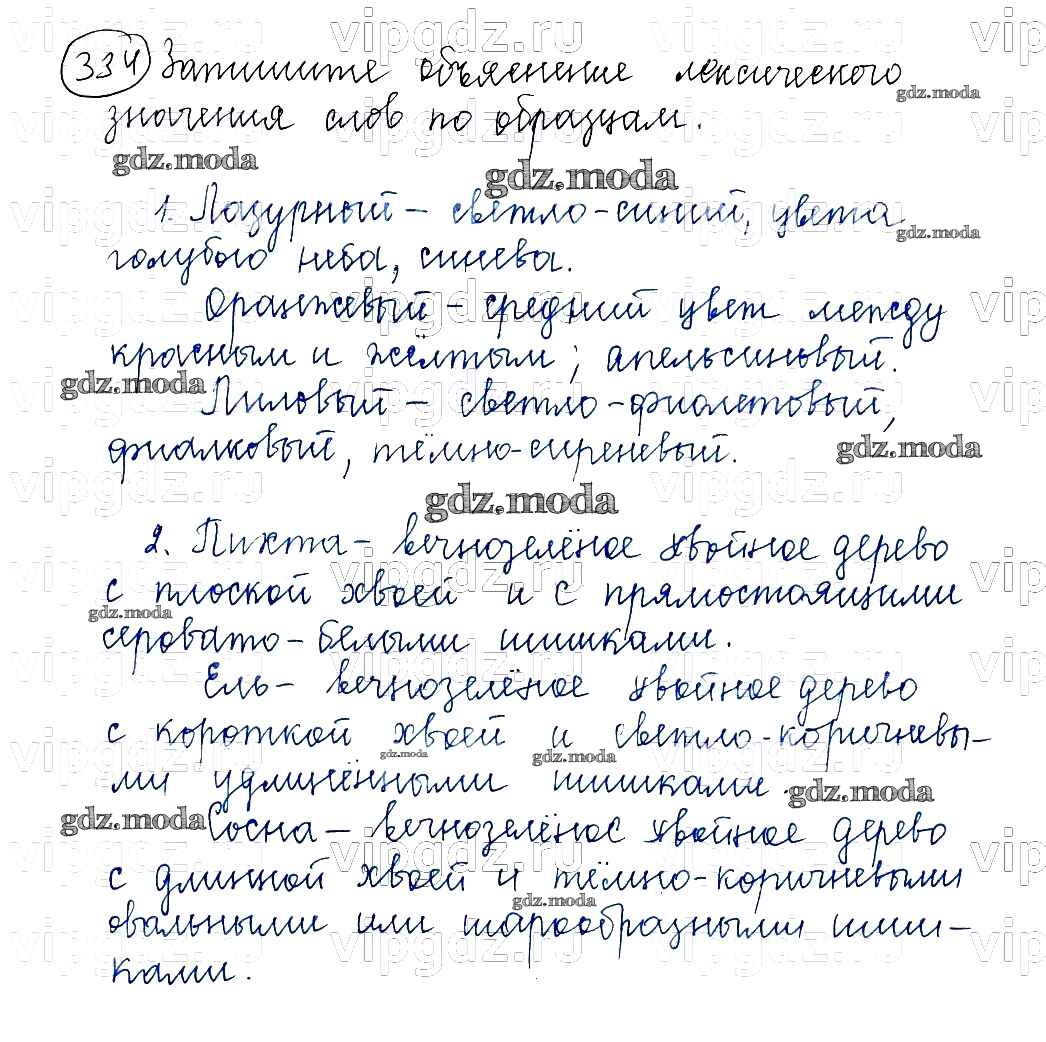 334 Запишите объяснение лексического
значения слов по образцам.
1. Лазурный – светло-синий, цвета
голубого неба, синева.
Оранжевый – средний цвет между
красным и жёлтым; апельсиновый.
Лиловый – светло-фиолетовый,
фиалковый, тёмно-сиреневый.
2. Пихта – вечнозелёное хвойное дерево
с плоской хвоей и с прямостоящими
серовато-белыми шишками.
Ель – вечнозелёное хвойное дерево
с короткой хвоей и светло-коричневы-
ми удлинёнными шишками.
Сосна – вечнозелёное хвойное дерево
с длинной хвоей и тёмно-коричневыми
овальными или шарообразными шиш-
ками.
vipgdz.ru
gdz.moda